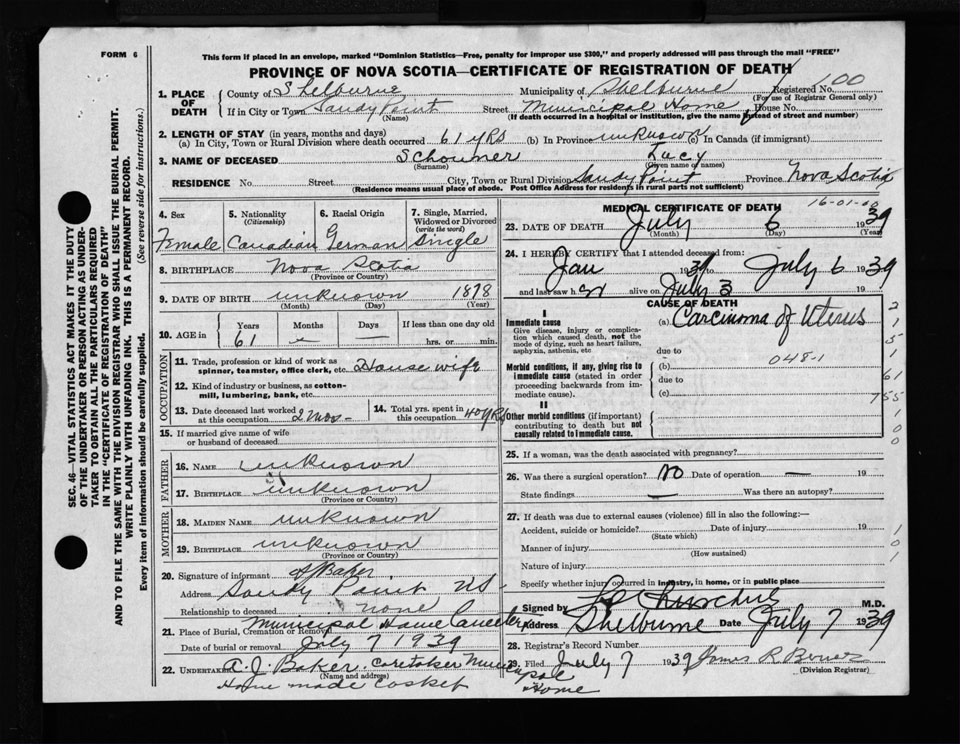 FORM 6
This form if placed in an envelope, marked "Dominion Statistics—Free, penalty for improper use $300," and properly addressed will pass through the mail "FREE"
PROVINCE OF NOVA SCOTIA—CERTIFICATE OF REGISTRATION OF DEATH
1. PLACE OF DEATH
County of Shelburne Municipality of Shelburne Registered No. 100
(For use of Registrar General only)
If in City or Town Sandy Point Street Municipal Home House No.
(Name) (If death occurred in a hospital or institution, give the name instead of street and number)
2. LENGTH OF STAY (in years, months and days)
(a) In City, Town or Rural Division where death occurred 61 yrs (b) In Province unknown (c) In Canada (if immigrant)
3. NAME OF DECEASED Schoumer Lucy
(Surname) (Given name or names)
RESIDENCE No. Street City, Town or Rural Division Sandy Point Province Nova Scotia
(Residence means usual place of abode. Post Office Address for residents in rural parts not sufficient)
4. Sex Female
5. Nationality (Citizenship) Canadian
6. Racial Origin German
7. Single, Married, Widowed or Divorced (write the word) Single
8. BIRTHPLACE Nova Scotia
(Province or Country)
9. DATE OF BIRTH unknown 1878
(Month) (Day) (Year)
10. AGE in Years Months Days If less than one day
61 — — hrs. or min.
OCCUPATION
11. Trade, profession or kind of work as spinner, teamster, office clerk, etc. House wife
12. Kind of industry or business, as cotton-mill, lumbering, bank, etc.
13. Date deceased last worked at this occupation 2 mos -
14. Total yrs. spent in this occupation 40 yrs
15. If married give name of wife or husband of deceased
FATHER
16. NAME unknown
17. BIRTHPLACE unknown
(Province or Country)
MOTHER
18. MAIDEN NAME unknown
19. BIRTHPLACE unknown
(Province or Country)
20. Signature of informant Baker
Address Sandy Point NS-
Relationship to deceased none
21. Place of Burial, Cremation or Removal Municipal Home
Date of burial or removal July 7 1939
22. UNDERTAKER A. J. Baker. caretaker Municipal Home
(Name and address)
Home made casket
MEDICAL CERTIFICATE OF DEATH
16-01-00
23. DATE OF DEATH July 6 1939
(Month) (Day) (Year)
24. I HEREBY CERTIFY that I attended deceased from:
Jan 1939 to July 6 1939
and last saw her alive on July 3 19
CAUSE OF DEATH
I
Immediate cause (a) Carcinoma of Uterus
Give disease, injury or complication which caused death, not the mode of dying, such as heart failure, asphyxia, asthenia, etc
due to
048-1
Morbid conditions, if any, giving rise to immediate cause (stated in order proceeding backwards from immediate cause). (b)
due to
(c)
II
Other morbid conditions (if important) contributing to death but not causally related to immediate cause.
2
1
5
1
61
755
1
0
0
25. If a woman, was the death associated with pregnancy?
26. Was there a surgical operation? No Date of operation — 19
State findings — Was there an autopsy?
27. If death was due to external causes (violence) fill in also the following:
Accident, suicide or homicide? Date of injury 19
(State which)
Manner of injury
(How sustained)
Nature of injury
1
0
Specify whether injury occurred in industry, in home, or in public place
Signed by Churchill M.D.
Address Shelburne Date July 7 1939
28. Registrar's Record Number
29. Filed July 7 1939 James R Bower
(Division Registrar)
SEC. 46—VITAL STATISTICS ACT MAKES IT THE DUTY
OF THE UNDERTAKER OR PERSON ACTING AS UNDER-
TAKER TO OBTAIN ALL THE PARTICULARS REQUIRED
IN THE "CERTIFICATE OF REGISTRATION OF DEATH"
AND TO FILE THE SAME WITH THE DIVISION REGISTRAR WHO SHALL ISSUE THE BURIAL PERMIT.
WRITE PLAINLY WITH UNFADING INK. THIS IS A PERMANENT RECORD.
Every item of information should be carefully supplied. (See reverse side for instructions.)